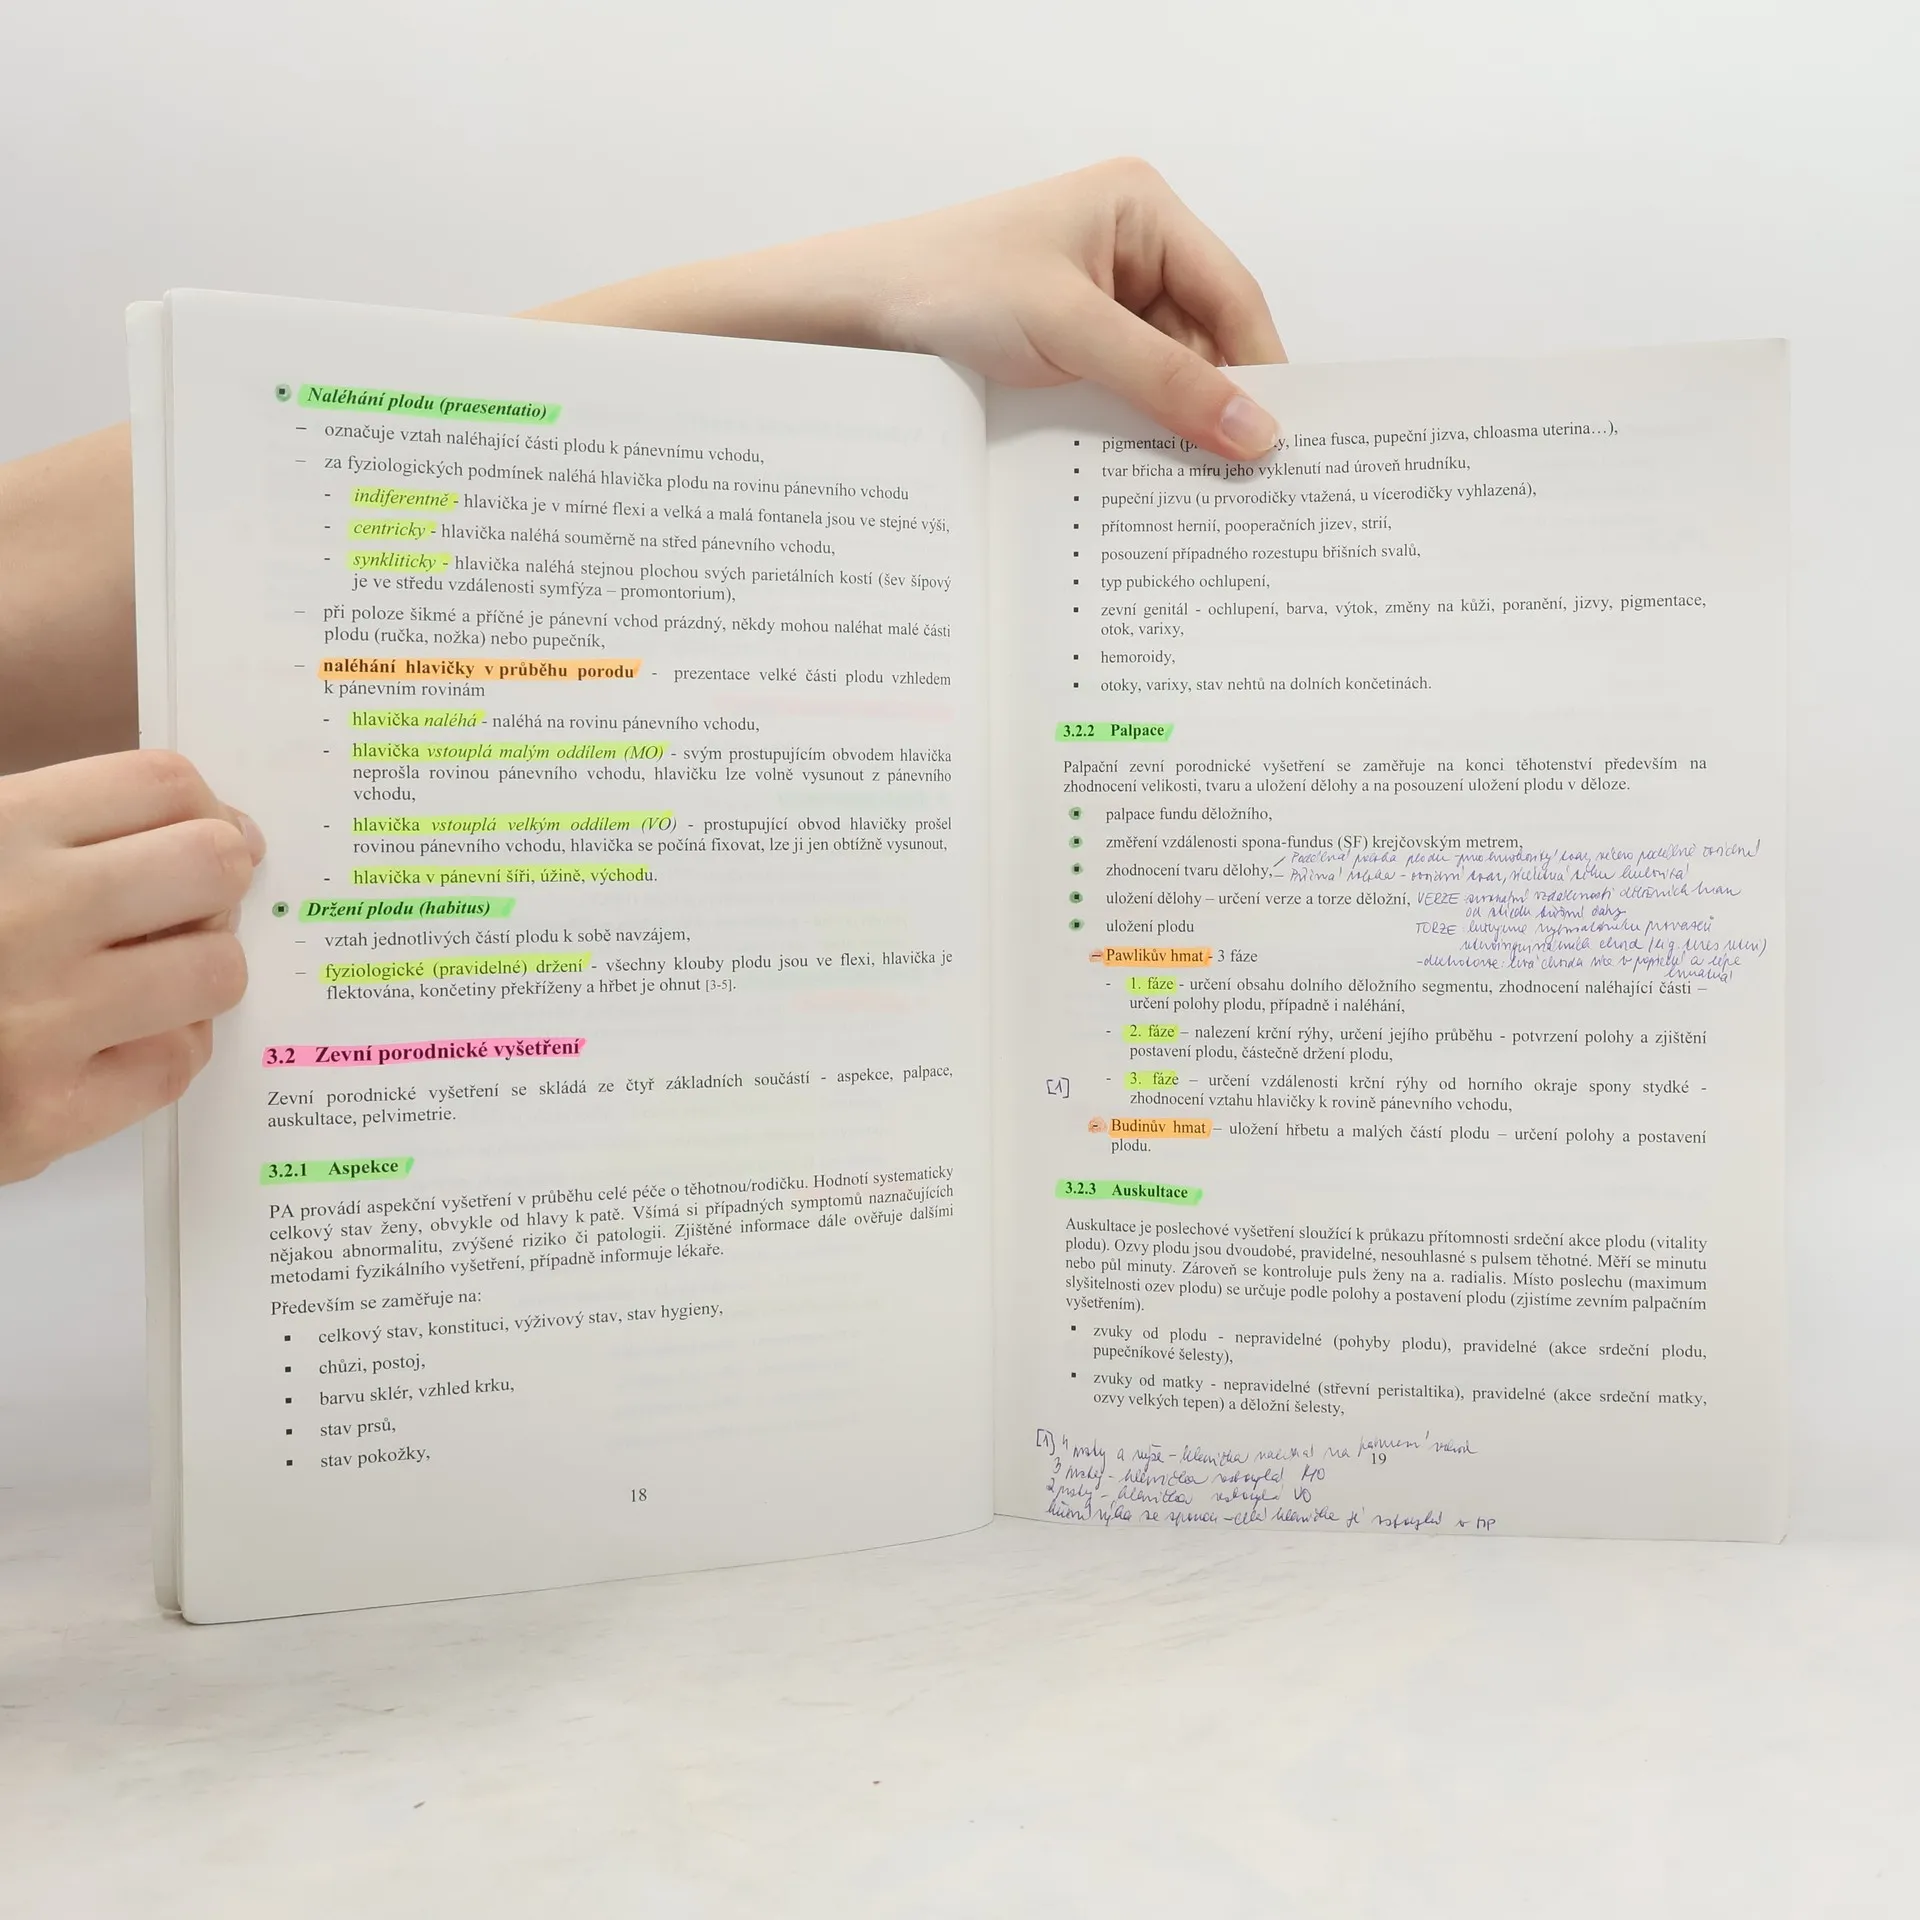 Naléhání plodu (praesentatio)
– označuje vztah naléhající části plodu k pánevnímu vchodu,
– za fyziologických podmínek naléhá hlavička plodu na rovinu pánevního vchodu
- indiferentně - hlavička je v mírné flexi a velká a malá fontanela jsou ve stejné výši,
- centricky - hlavička naléhá souměrně na střed pánevního vchodu,
- synkliticky - hlavička naléhá stejnou plochou svých parietálních kostí (šev šípový
je ve středu vzdálenosti symfýza – promontorium),
– při poloze šikmé a příčné je pánevní vchod prázdný, někdy mohou naléhat malé části
plodu (ručka, nožka) nebo pupečník,
– naléhání hlavičky v průběhu porodu - prezentace velké části plodu vzhledem
k pánevním rovinám
- hlavička naléhá - naléhá na rovinu pánevního vchodu,
- hlavička vstouplá malým oddílem (MO) - svým prostupujícím obvodem hlavička
neprošla rovinou pánevního vchodu, hlavičku lze volně vysunout z pánevního
vchodu,
- hlavička vstouplá velkým oddílem (VO) - prostupující obvod hlavičky prošel
rovinou pánevního vchodu, hlavička se počíná fixovat, lze ji jen obtížně vysunout,
- hlavička v pánevní šíři, úžině, východu.
Držení plodu (habitus)
– vztah jednotlivých částí plodu k sobě navzájem,
– fyziologické (pravidelné) držení - všechny klouby plodu jsou ve flexi, hlavička je
flektována, končetiny překříženy a hřbet je ohnut [3-5].
3.2 Zevní porodnické vyšetření
Zevní porodnické vyšetření se skládá ze čtyř základních součástí - aspekce, palpace,
auskultace, pelvimetrie.
3.2.1 Aspekce
PA provádí aspekční vyšetření v průběhu celé péče o těhotnou/rodičku. Hodnotí systematicky
celkový stav ženy, obvykle od hlavy k patě. Všímá si případných symptomů naznačujících
nějakou abnormalitu, zvýšené riziko či patologii. Zjištěné informace dále ověřuje dalšími
metodami fyzikálního vyšetření, případně informuje lékaře.
Především se zaměřuje na:
▪ celkový stav, konstituci, výživový stav, stav hygieny,
▪ chůzi, postoj,
▪ barvu sklér, vzhled krku,
▪ stav prsů,
▪ stav pokožky,
18
▪ pigmentaci linea fusca, pupeční jizva, chloasma uterina…),
▪ tvar břicha a míru jeho vyklenutí nad úroveň hrudníku,
▪ pupeční jizvu (u prvorodičky vtažená, u vícerodičky vyhlazená),
▪ přítomnost hernií, pooperačních jizev, strií,
▪ posouzení případného rozestupu břišních svalů,
▪ typ pubického ochlupení,
▪ zevní genitál - ochlupení, barva, výtok, změny na kůži, poranění, jizvy, pigmentace,
otok, varixy,
▪ hemoroidy,
▪ otoky, varixy, stav nehtů na dolních končetinách.
3.2.2 Palpace
Palpační zevní porodnické vyšetření se zaměřuje na konci těhotenství především na
zhodnocení velikosti, tvaru a uložení dělohy a na posouzení uložení plodu v děloze.
▪ palpace fundu děložního,
▪ změření vzdálenosti spona-fundus (SF) krejčovským metrem,
podélná poloha plodu
▪ zhodnocení tvaru dělohy, – příčná poloha
▪ uložení dělohy – určení verze a torze děložní, VERZE
▪ uložení plodu TORZE
– Pawlikův hmat - 3 fáze
- 1. fáze - určení obsahu dolního děložního segmentu, zhodnocení naléhající části –
určení polohy plodu, případně i naléhání,
- 2. fáze – nalezení krční rýhy, určení jejího průběhu - potvrzení polohy a zjištění
postavení plodu, částečně držení plodu,
[1] - 3. fáze – určení vzdálenosti krční rýhy od horního okraje spony stydké -
zhodnocení vztahu hlavičky k rovině pánevního vchodu,
– Budinův hmat – uložení hřbetu a malých částí plodu – určení polohy a postavení
plodu.
3.2.3 Auskultace
Auskultace je poslechové vyšetření sloužící k průkazu přítomnosti srdeční akce plodu (vitality
plodu). Ozvy plodu jsou dvoudobé, pravidelné, nesouhlasné s pulsem těhotné. Měří se minutu
nebo půl minuty. Zároveň se kontroluje puls ženy na a. radialis. Místo poslechu (maximum
slyšitelnosti ozev plodu) se určuje podle polohy a postavení plodu (zjistíme zevním palpačním
vyšetřením).
▪ zvuky od plodu - nepravidelné (pohyby plodu), pravidelné (akce srdeční plodu,
pupečníkové šelesty),
▪ zvuky od matky - nepravidelné (střevní peristaltika), pravidelné (akce srdeční matky,
ozvy velkých tepen) a děložní šelesty,
[1] 4 prsty a výše – hlavička naléhá na pánevní vchod
19
3 prsty – hlavička vstouplá MO
2 prsty – hlavička vstouplá VO